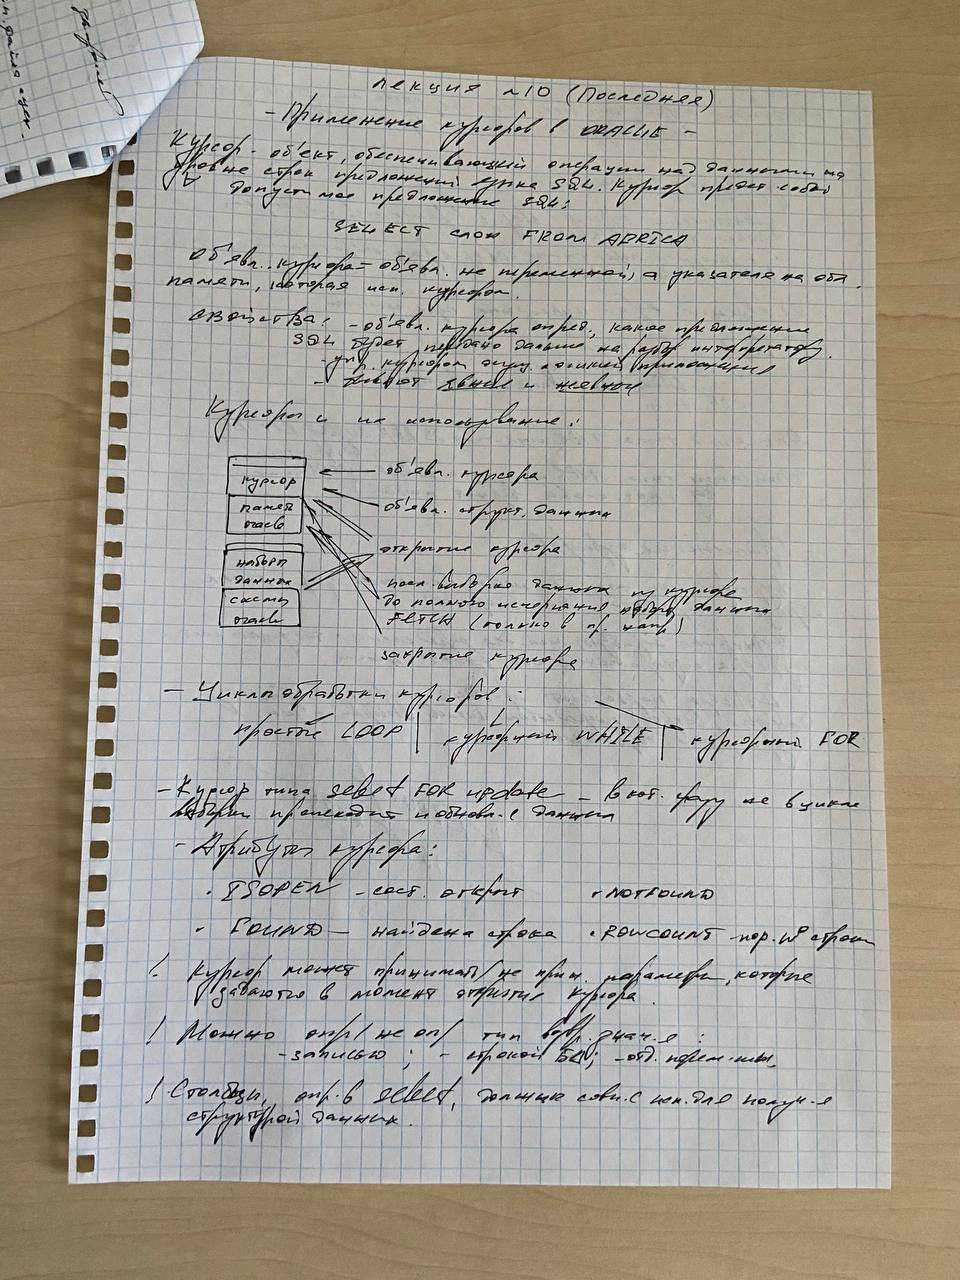 лекция №10 (Последняя)
- Применение курсоров в ORACLE -
Курсор - объект, обеспечивающий операции над данными на
уровне строк предложений языка SQL. Курсор предст. собой
допустимое предложение SQL:
SELECT слон FROM AFRICA
Объявл. курсора = объявл. не переменной, а указателя на обл.
памяти, которая исп. курсором.
свойства: - объявл. курсора опред., какое предложение
SQL будет передано дальше на разбор интерпретатору.
- упр. курсором осущ. логикой приложения
- бывают явные и неявные
Курсоры и их использование:
курсор
объявл. курсора
объявл. структ. данных
наборы
данных
открытие курсора
посл. выборка данных из курсора
до полного исчерпания набора данных
FETCH (только в пр. напр)
закрытие курсора
- Циклы обработки курсоров:
простые LOOP | курсорный WHILE | курсорный FOR
- Курсор типа select FOR update - в кот. фазу же в цикле
выборки происходит и обновл. данных
- Атрибуты курсора:
· ISOPEN - сост. открыт · NOTFOUND
· FOUND - найдена строка · ROWCOUNT - пор. № строки
! курсор может принимать/не прин. параметры, которые
задаются в момент открытия курсора.
! Можно опр/не оп/ тип возвр. знач-я:
- записью; - строкой БД; - отд. перем-ми,
! Столбцы, опр. в select, должны совп. с исп. для получ-я
структурой данных.